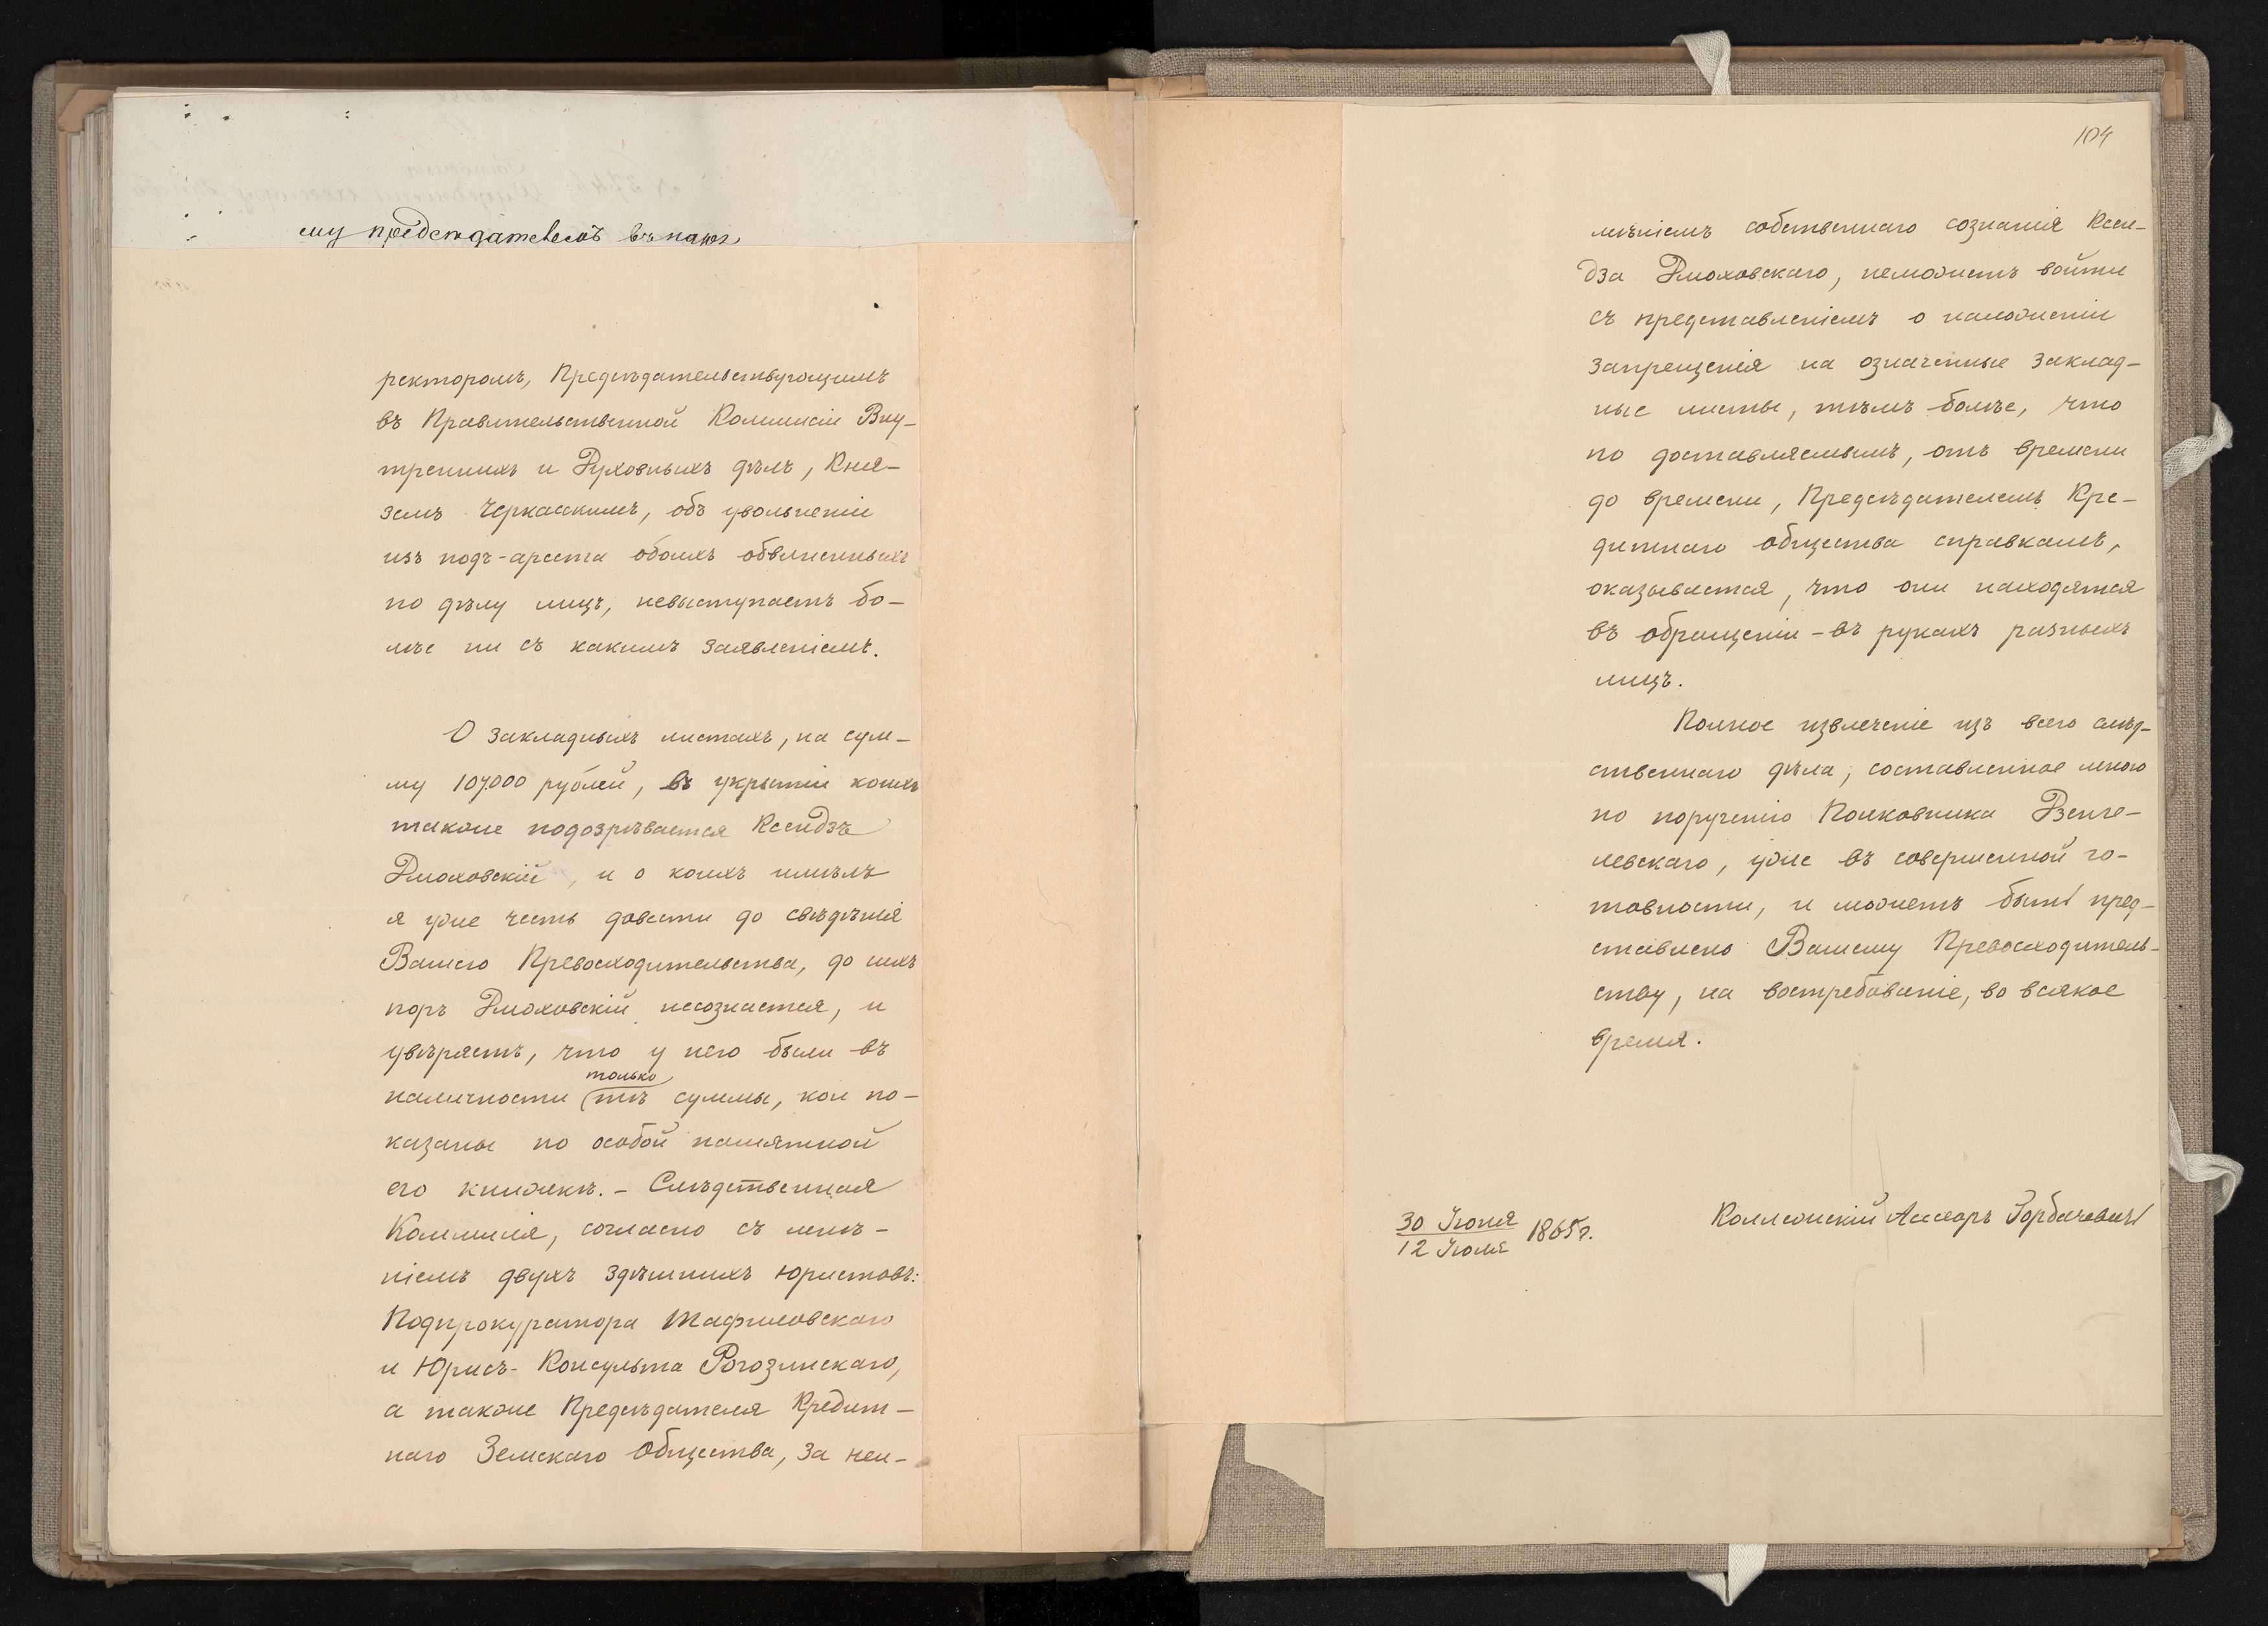 му предсѣдательствъ въ
ректоромъ, Предсѣдательствующимъ
въ Правительственной Коммисіи Вну-
треннихъ и Духовныхъ дѣлъ, Кня-
земъ Черкасскимъ, объ увольненіи
изъ подъ-ареста обоихъ обвиненныхъ
по дѣлу лицъ, невыступаетъ бо-
лѣе ни съ какимъ заявленіемъ.
О закладныхъ листахъ, на сум-
му 107.000 рублей, въ укрытіи коихъ
также подозрѣвается Ксендзъ
Дмоховскій, и о коихъ имѣлъ
я уже честь довести до свѣдѣнія
Вашего Превосходительства, до сихъ
поръ Дмоховскій несознается, и
увѣряетъ, что у него были въ
только
наличности тѣ суммы, кои по-
казаны по особой памятной
его книжкѣ. - Слѣдственная
Коммисія, согласно съ мнѣ-
ніемъ двухъ здѣшнихъ юристовъ:
Подпрокуратора Шафиловскаго
и Юрисъ-Консульта Рогозинскаго,
а также Предсѣдателя Кредит-
наго Земскаго Общества, за неи-
104
мѣніемъ собственнаго сознанія Ксен-
дза Дмоховскаго, неможетъ войти
съ представленіемъ о наложеніи
запрещенія на означенные заклад-
ные листы, тѣмъ болѣе, что
по доставляемымъ, отъ времени
до времени, Предсѣдателемъ Кре-
дитнаго общества справкамъ,
оказывается, что они находятся
въ обращеніи - въ рукахъ разныхъ
лицъ.
Полное извлеченіе изъ всего слѣд-
ственнаго дѣла, составленное мною
по порученію Полковника Дзенге-
левскаго, уже въ совершенной го-
товности, и можетъ быть пред-
ставлено Вашему Превосходитель-
ству, на востребованіе, во всякое
время.
Коллежскій Ассесоръ Горбачевичъ
30 Іюня
12 Іюля 1865 г.